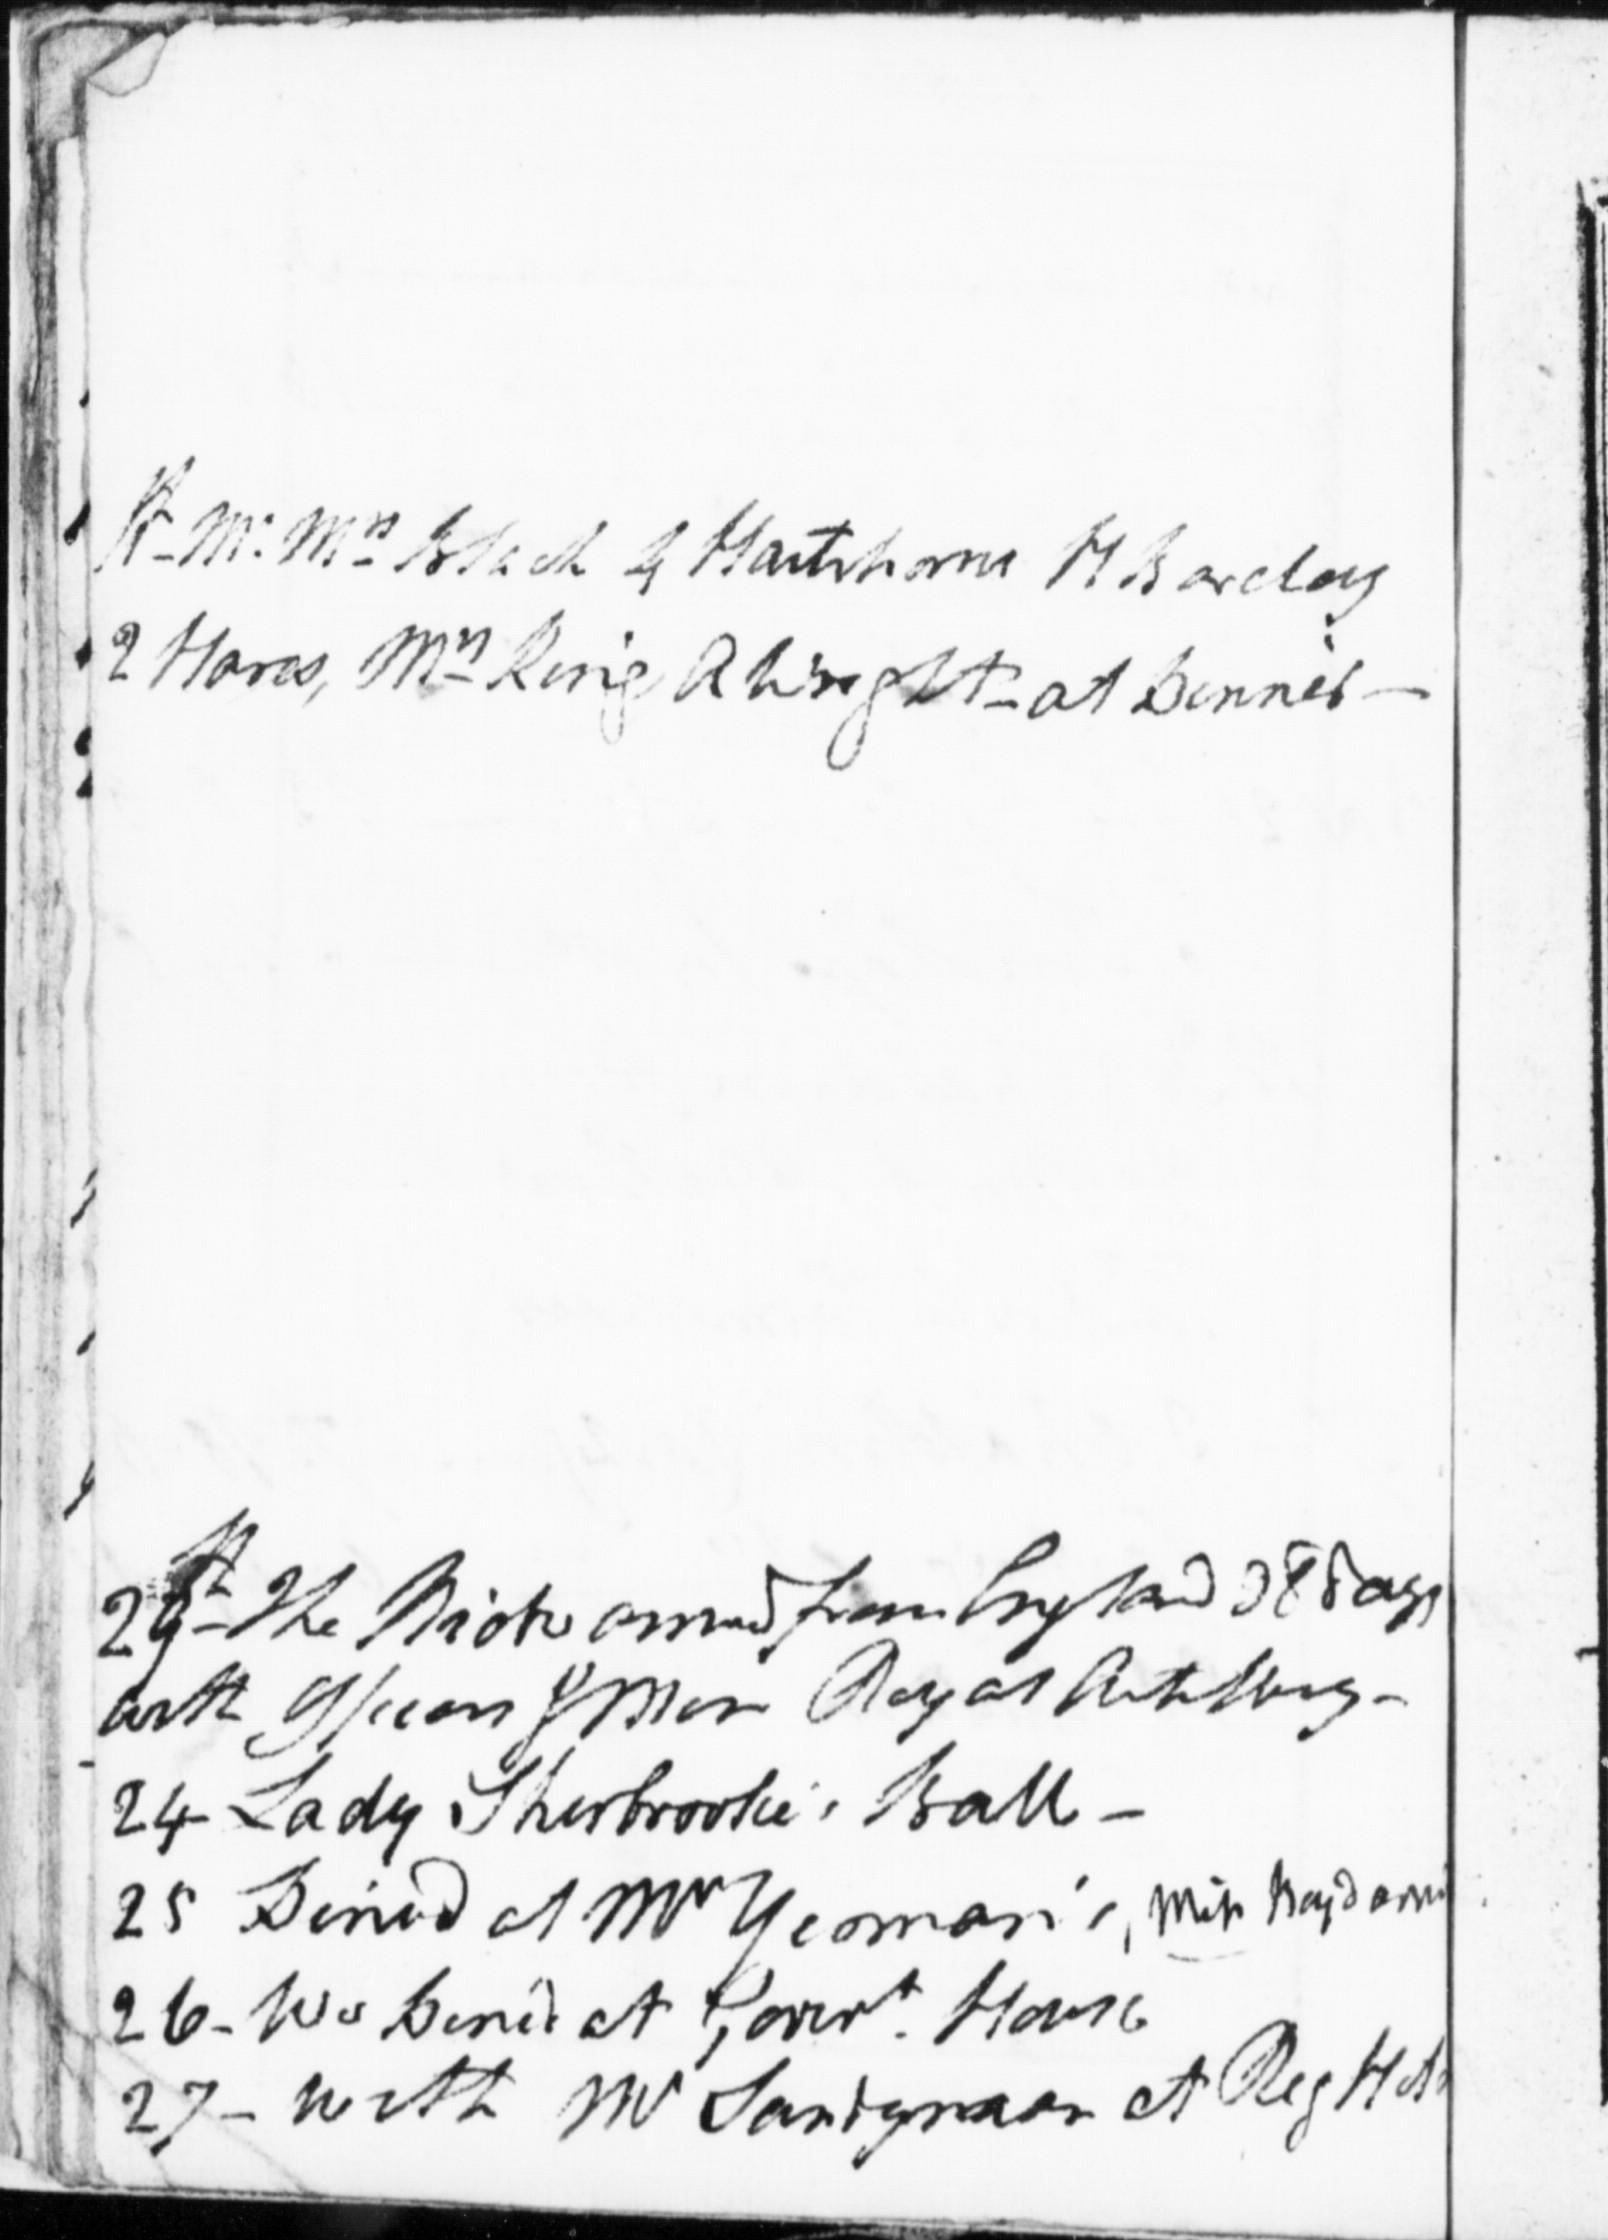 Mr. Mrs Black & Hartshorne H Barclay
2 Hares, Mrs King A Wright - at Dinner -
The arrived from England 38 Days
with Officers & Men Royal Artillery -
24 Lady Sherbrooke's Ball -
25 Dined at Mr Yeoman's, Miss Boyd
26 - We Dined at Govert. House
27 - with Mr at Reg